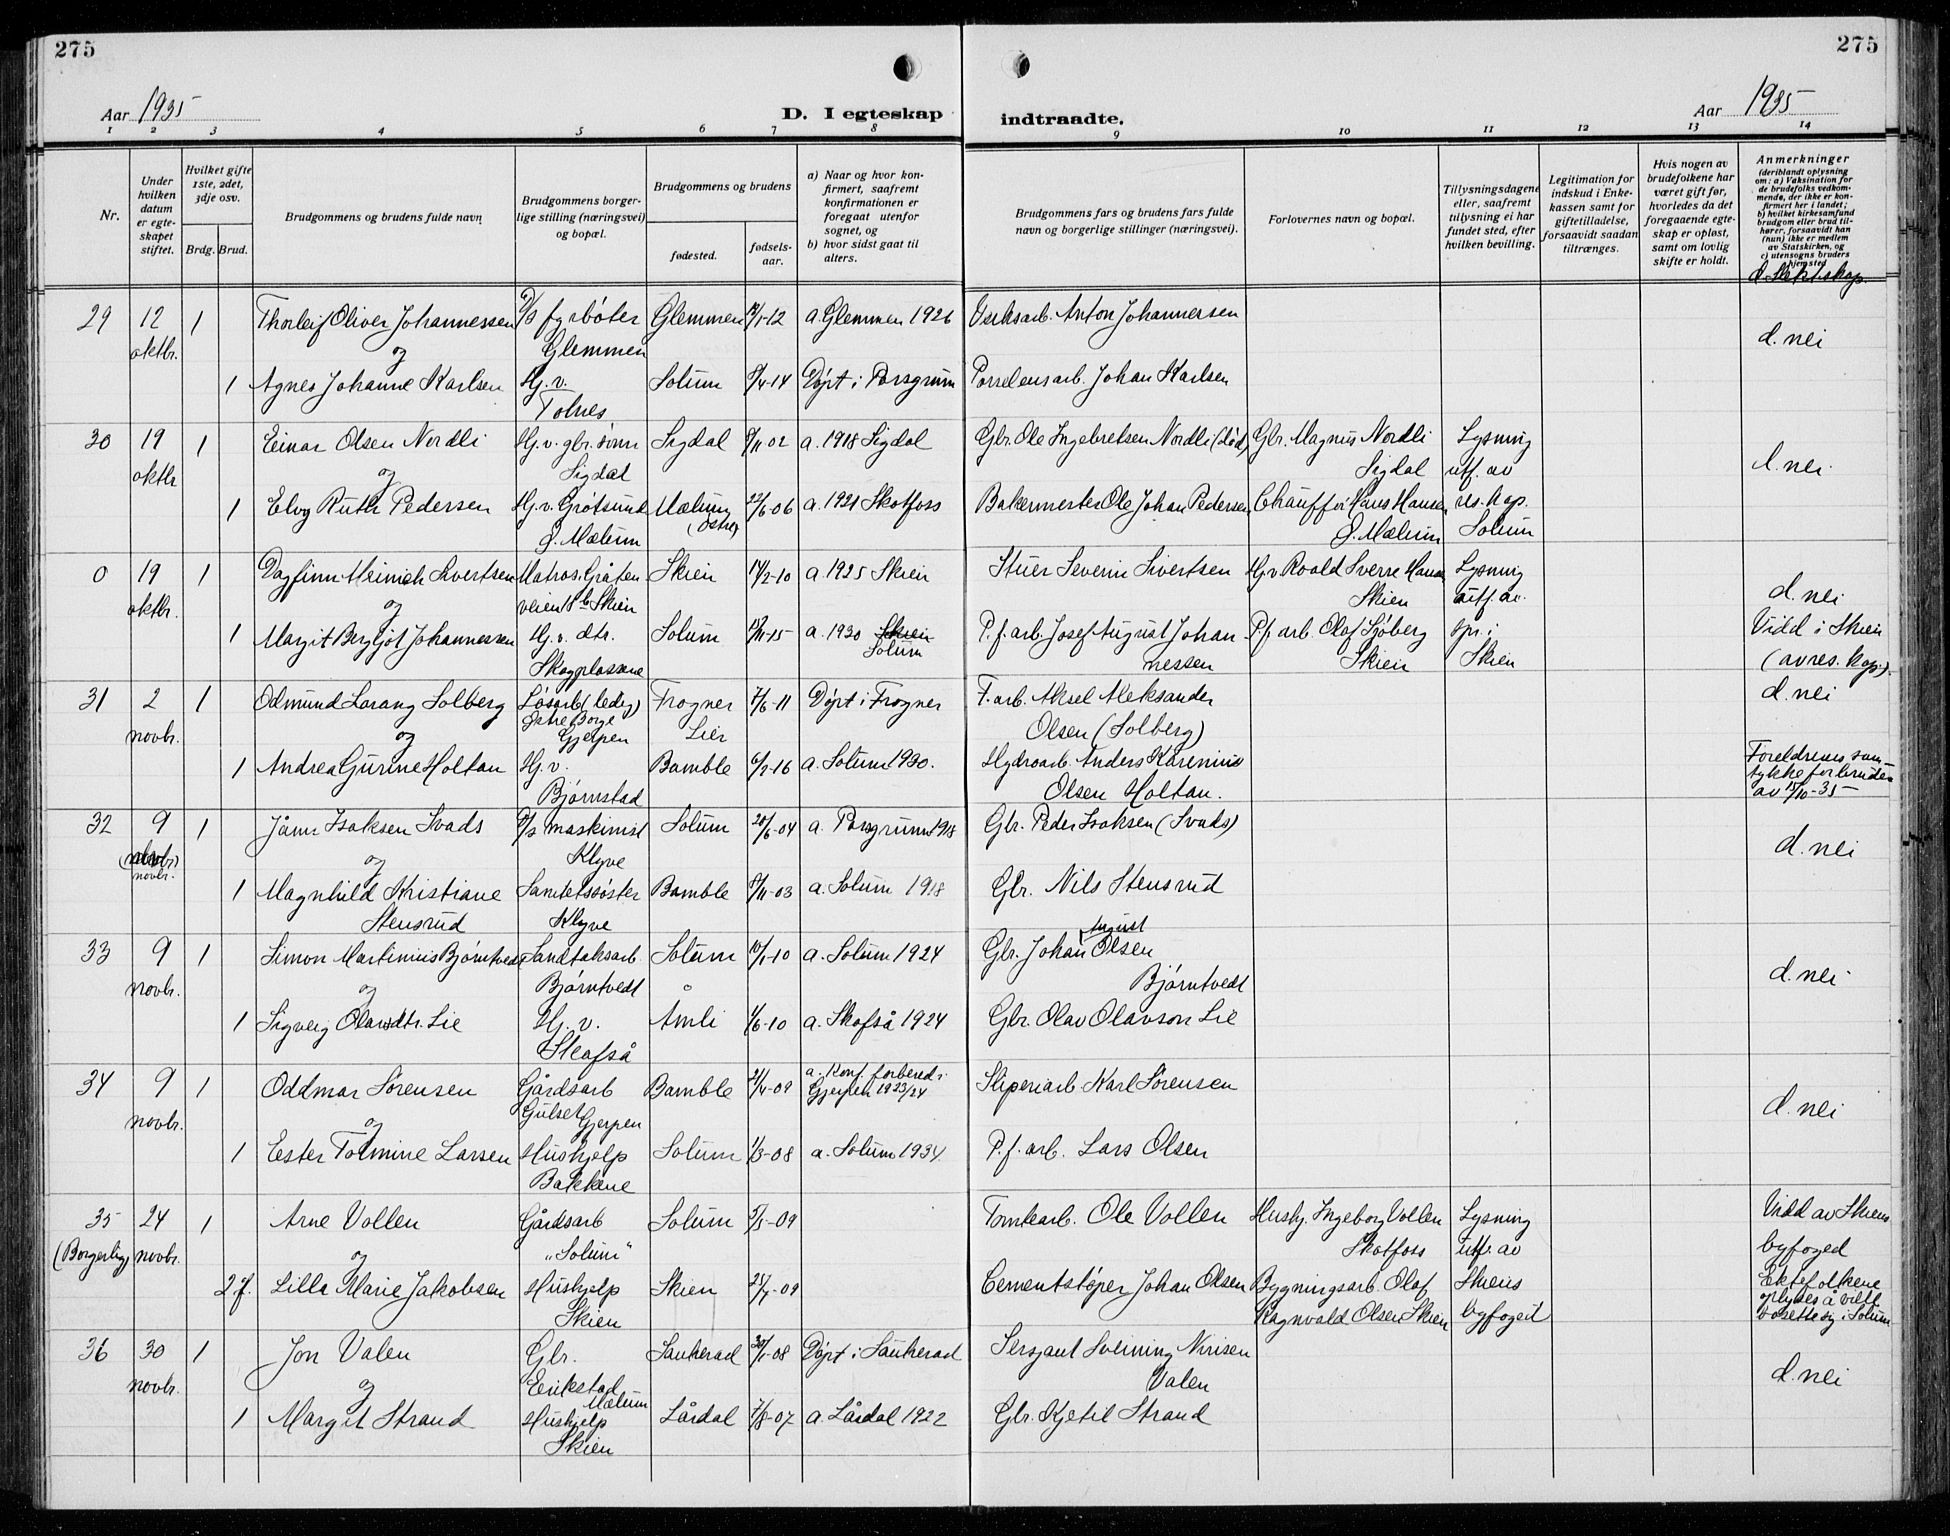 275
275
Aar 1935
D. I egteskap
indtraadte.
Aar 1935
1 2 3 4 5 6 7 8 9 10 11 12 13 14
Nr.
Under hvilken datum er egteskapet stiftet.
Hvilket gifte 1ste, 2det, 3dje osv.
Brdg. Brud.
Brudgommens og brudens fulde navn
Brudgommens borgerlige stilling (næringsvei) og bopæl.
Brudgommens og brudens
fødested.
fødselsaar.
a) Naar og hvor konfirmert, saafremt konfirmationen er foregaat utenfor sognet, og
b) hvor sidst gaat til alters.
Brudgommens fars og brudens fars fulde navn og borgerlige stillinger (næringsvei).
Forlovernes navn og bopæl.
Tillysningsdagene eller, saafremt tillysning ei har fundet sted, efter hvilken bevilling.
Legitimation for indskud i Enkekassen samt for giftetilladelse, forsaavidt saadan tiltrænges.
Hvis nogen av brudefolkene har været gift før, hvorledes da det foregaaende egteskap er opløst, samt om lovlig skifte er holdt.
Anmerkninger (deriblandt oplysning om: a) Vaksination for de brudefolks vedkommende, der ikke er konfirmert her i landet; b) hvilket kirkesamfund brudgom eller brud tilhører, forsaavidt han (hun) ikke er medlem av Statskirken, og c) utensogns bruders hjemsted
d. Slektskap.
29 12 1 Thorleif Oliver Johannessen D/S fyrbøter Glemmen 12/1-12 a. Glemmen 1926 Verksarb. Anton Johannersen
oktbr. og Glemmen d. nei
1 Agnes Johanne Karlsen Hj. v. Solum 9/4-14 Døpt i Porsgrunn Porselensarb. Johan Karlsen
Tolnes
30 19 1 Einar Olsen Nordli Hj. v. gbr. sønn Sigdal 9/11 02 a. 1918 Sigdal Gbr. Ole Ingebretsen Nordli (død) Gbr. Magnus Nordli Lysning
oktbr og Sigdal Sigdal utf. av d. nei.
1 Elvy Ruth Pedersen Hj. v. Grøtsund Mælum (østre) 22/6-06 a. 1921 Skotfoss Bakermester Ole Johan Pedersen Chauffør Hans Hansen res. kap.
Ø. Mælum Ø. Mælum Solum
0 19 1 Dagfinn Heinrich Sivertsen Matros. Gråten Skien 14/2-10 a. 1925 Skien Stuer Severin Sivertsen Hj. v. Roald Sverre Hansen Lysning
oktbr. og veien 8 b Skien Skien utf. av d. nei
1 Margit Bergljot Johannessen Hj. v. dtr. Solum 13/11-15 a. 1930 Skien Solum P. f. arb. Josef August Johan P. f. arb. Olaf Sjøberg spr. i Vidd i Skien
Skogplassene nessen Skien Skien (av res. kap.).
31 2 1 Odmund Lorang Solberg Løsarb. (ledig) Frogner 7/6-11 Døpt i Frogner F. arb. Aksel Aleksander d. nei
novbr. og Østre Borge Gjerpen Lier Olsen (Solberg)
1 Andrea Gurine Holtan Hj. v. Bamble 6/2-16 a. Solum 1930. Hydroarb. Anders Karenius Foreldrenes samtykke for bruden
Bjørnstad Olsen Holtan. av 15/10-35
32 9 1 Jånn Isaksen Svads D/S maskinist Solum 20/6-04 a. Porsgrunn 1918 Gbr. Peder Isaksen (Svads)
novbr. og Klyve d. nei
1 Magnhild Kristiane Sanitetssøster Bamble 8/11-03 a. Solum 1918 Gbr. Nils Stensrud
Stensrud Klyve
33 9 1 Simon Martinius Bjørntvedt Sandtaksarb. Solum 10/1-10 a. Solum 1924 Gbr. Johan August Olsen
novbr. og Bjørntvedt Bjørntvedt d. nei
1 Sigveig Olavsdtr. Lie Hj. v. Åmli 1/6-10 a. Skafså 1924 Gbr. Olav Olavson Lie
Skafså
34 9 1 Oddmar Sørensen Gårdsarb Bamble 21/4-09 a. Konf. forbered i Gjerpen 1923/24 Sliperiarb. Karl Sørensen
novbr. og Gulset Gjerpen d. nei
1 Ester Tomine Larsen Hushjelp Solum 1/3-08 a. Solum 1934. P. f. arb. Lars Olsen
Bakkene
35 24 1 Arne Vollen Gårdsarb Solum 5/5-09 Tomtearb. Ole Vollen Hushj. Ingeborg Vollen Lysning Vidd av Skiens
(Borgerlig) novbr. og „Solum" Skotfoss utf. av byfoged
2 f. Lilla Marie Jakobsen Hushjelp Skien 21/7-09 Cementstøper Johan Olsen Bygningsarb. Olaf Skiens Ektefolkene
Skien Ragnvald Olsen Skien byfoged oplydes å ville bosette sig i Solum
36 30 1 Jon Valen Gbr. Sauherad 30/1-08 Døpt i Sauherad Sersjant Sveinung Nirisen
novbr. og Erikstad Mælum Valen d. nei
1 Margit Strand Hushjelp Lårdal 7/8-07 a. Lårdal 1922 Gbr. Kjetil Strand
Skien